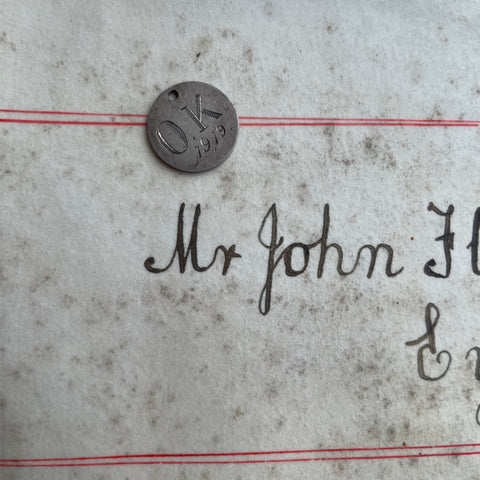 OK
1919.
Mr John